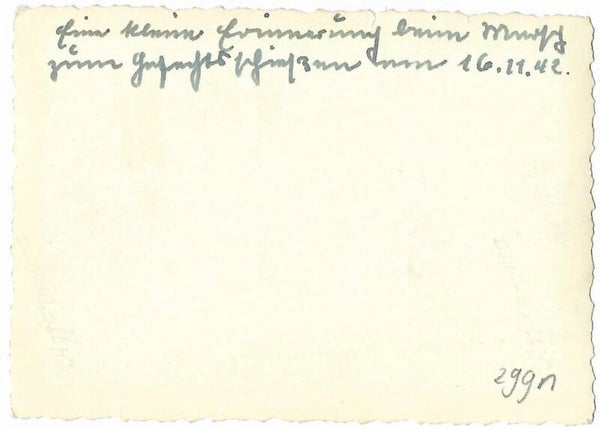 Eine kleine Erinnerung beim Marsch
zum Gefechtsschießen am 16.11.42.
299n